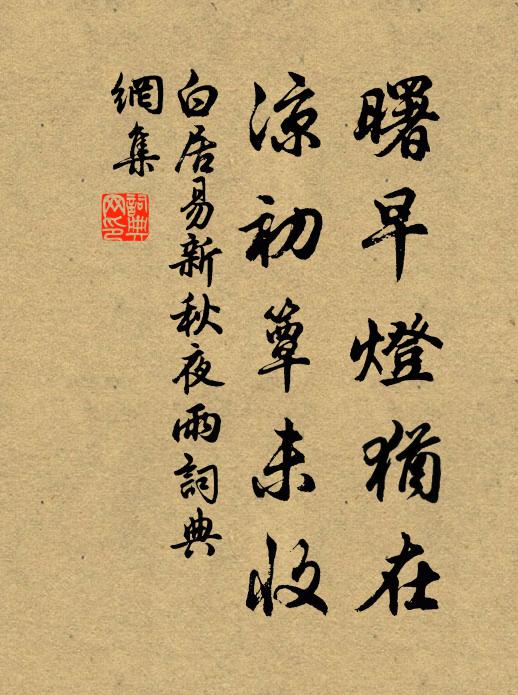 曙早燈猶在
涼初簟未收
白居易新秋夜雨詞典
網集
詞典
网印